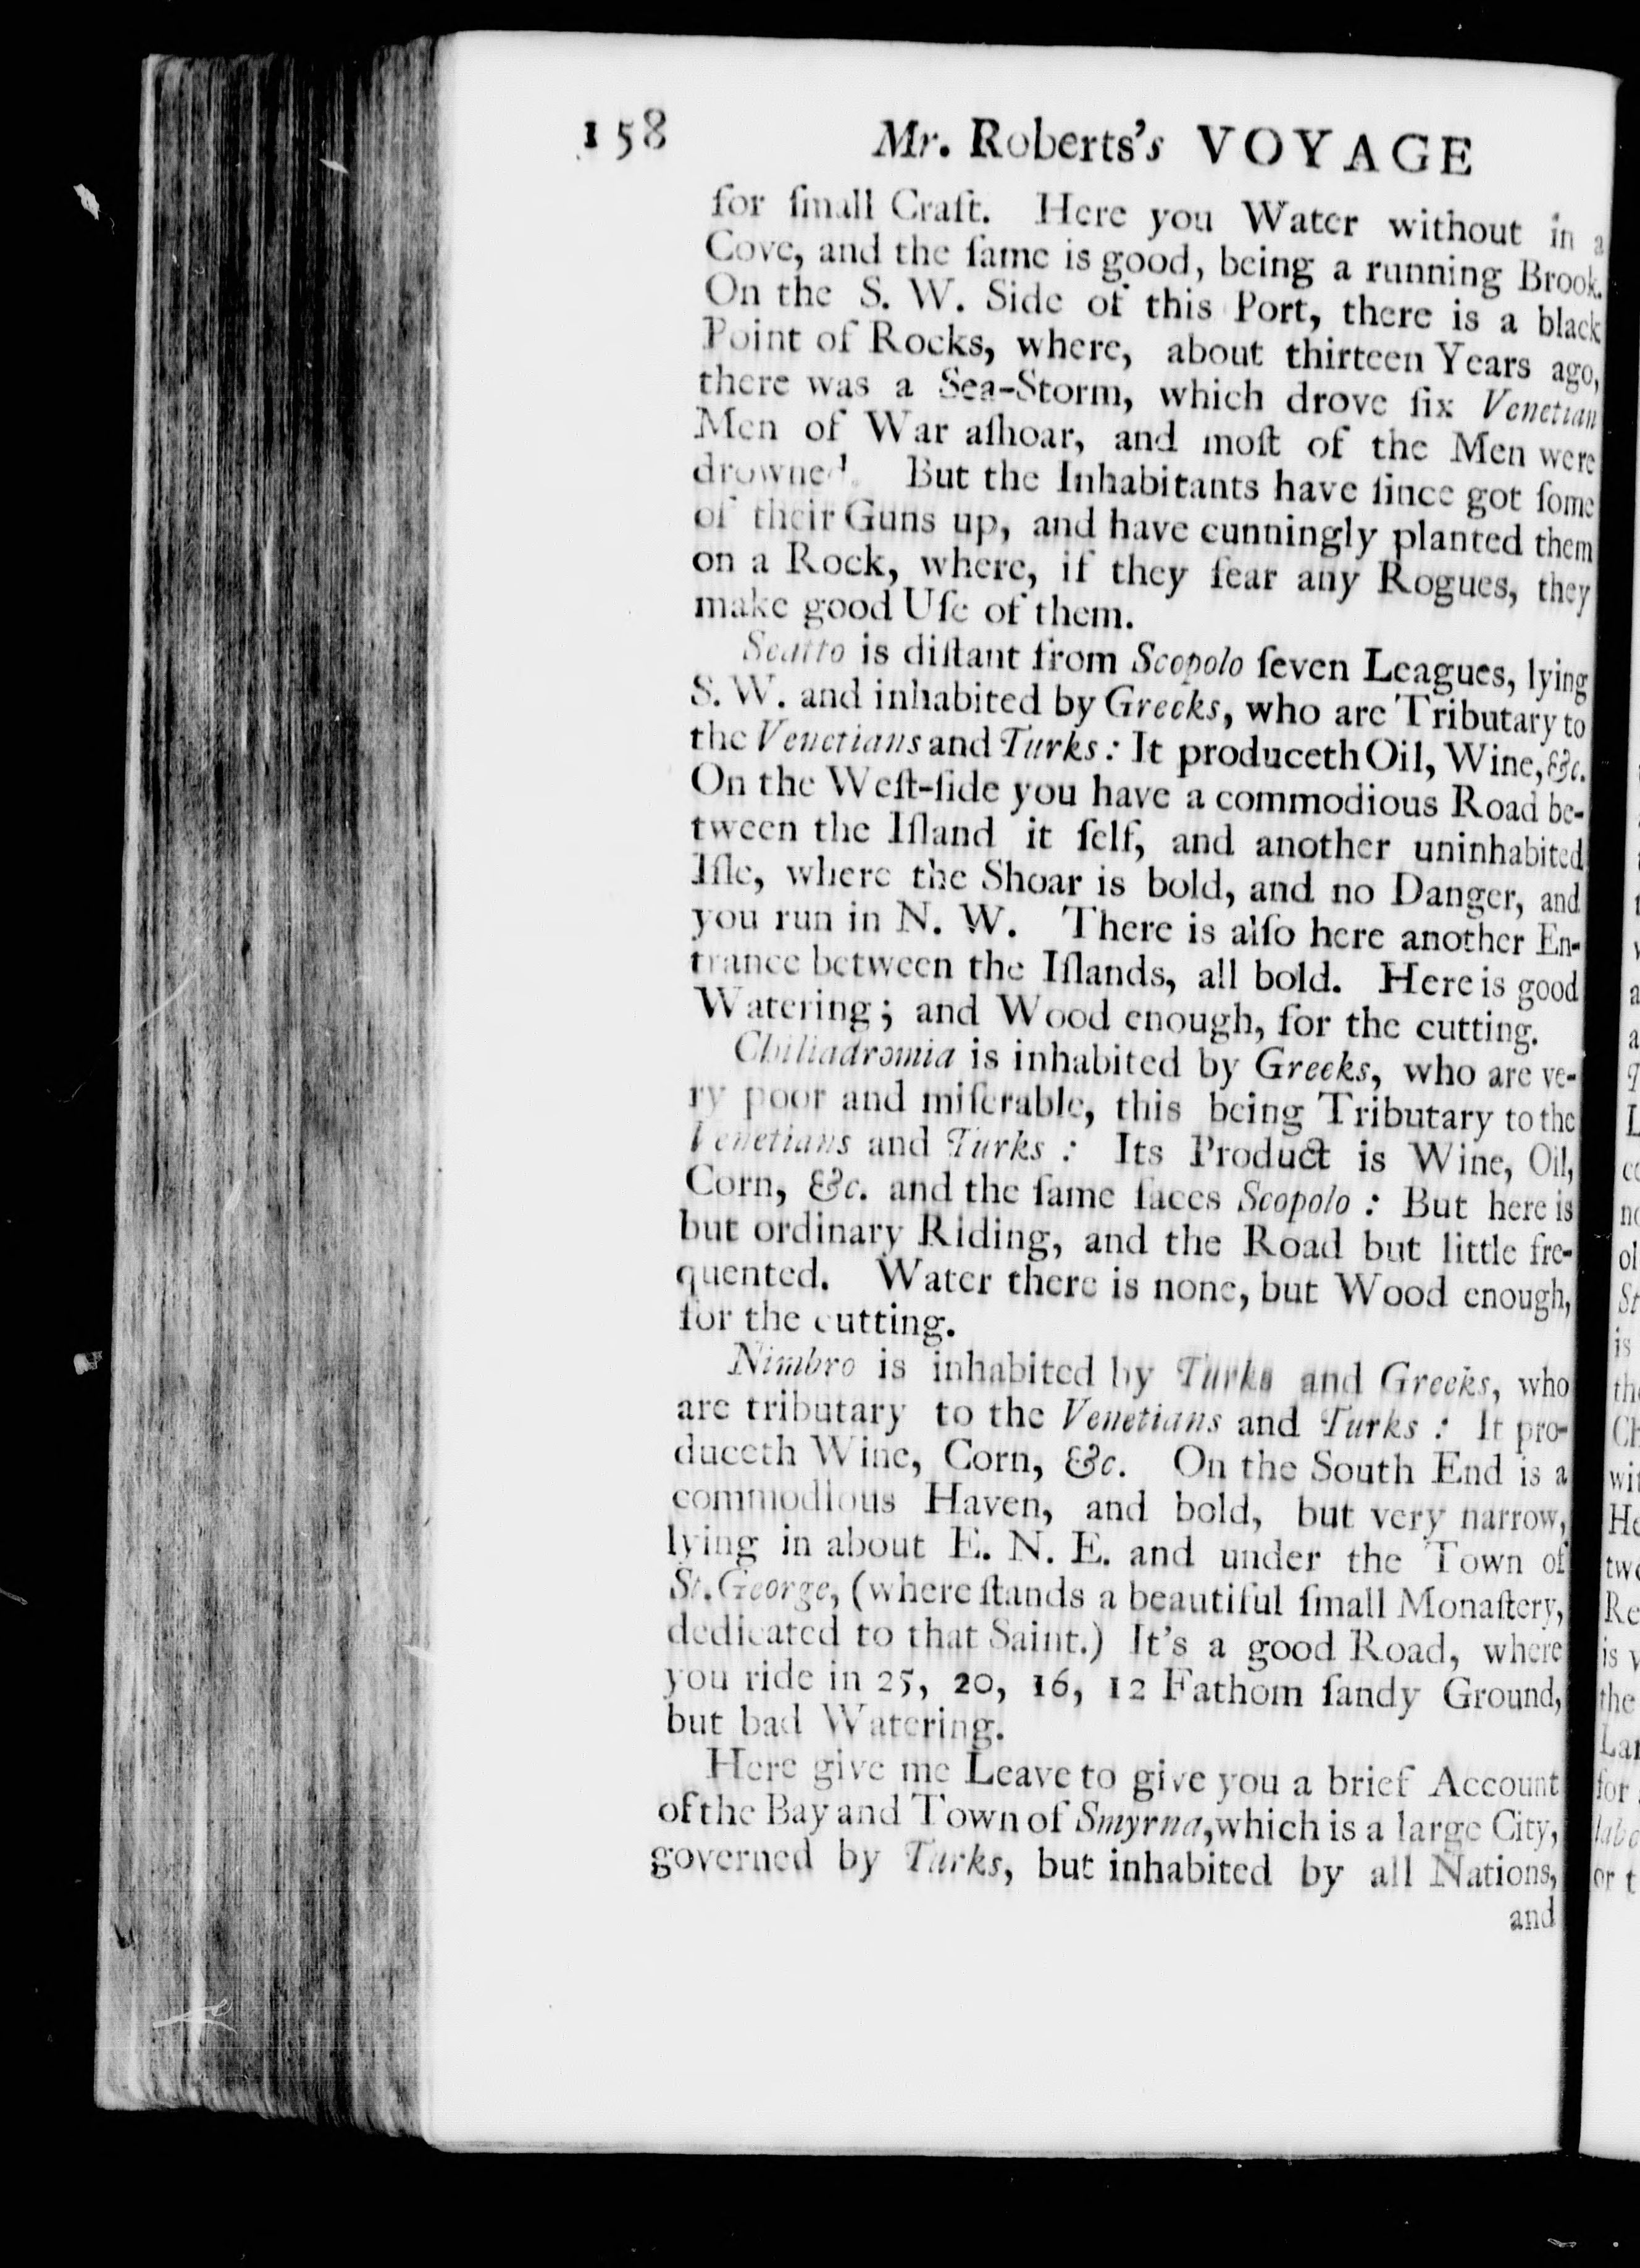 158 Mr. Roberts's VOYAGE
for ſmall Craft. Here you Water without in a
Cove, and the ſame is good, being a running Brook.
On the S. W. Side of this Port, there is a black
Point of Rocks, where, about thirteen Years ago,
there was a Sea-Storm, which drove ſix Venetian
Men of War aſhoar, and moſt of the Men were
drowned. But the Inhabitants have ſince got ſome
of their Guns up, and have cunningly planted them
on a Rock, where, if they fear any Rogues, they
make good Uſe of them.
Scatto is diſtant from Scopolo ſeven Leagues, lying
S. W. and inhabited by Greeks, who are Tributary to
the Venetians and Turks: It produceth Oil, Wine, &c.
On the Weſt-ſide you have a commodious Road be-
tween the Iſland it ſelf, and another uninhabited
Iſle, where the Shoar is bold, and no Danger, and
you run in N. W. There is alſo here another En-
trance between the Iſlands, all bold. Here is good
Watering; and Wood enough, for the cutting.
Chiliadromia is inhabited by Greeks, who are ve-
ry poor and miſerable, this being Tributary to the
Venetians and Turks: Its Product is Wine, Oil,
Corn, &c. and the ſame faces Scopolo: But here is
but ordinary Riding, and the Road but little fre-
quented. Water there is none, but Wood enough,
for the cutting.
Nimbro is inhabited by Turks and Greeks, who
are tributary to the Venetians and Turks: It pro-
duceth Wine, Corn, &c. On the South End is a
commodious Haven, and bold, but very narrow,
lying in about E. N. E. and under the Town of
St. George, (where ſtands a beautiful ſmall Monaſtery,
dedicated to that Saint.) It's a good Road, where
you ride in 25, 20, 16, 12 Fathom ſandy Ground,
but bad Watering.
Here give me Leave to give you a brief Account
of the Bay and Town of Smyrna, which is a large City,
governed by Turks, but inhabited by all Nations,
and